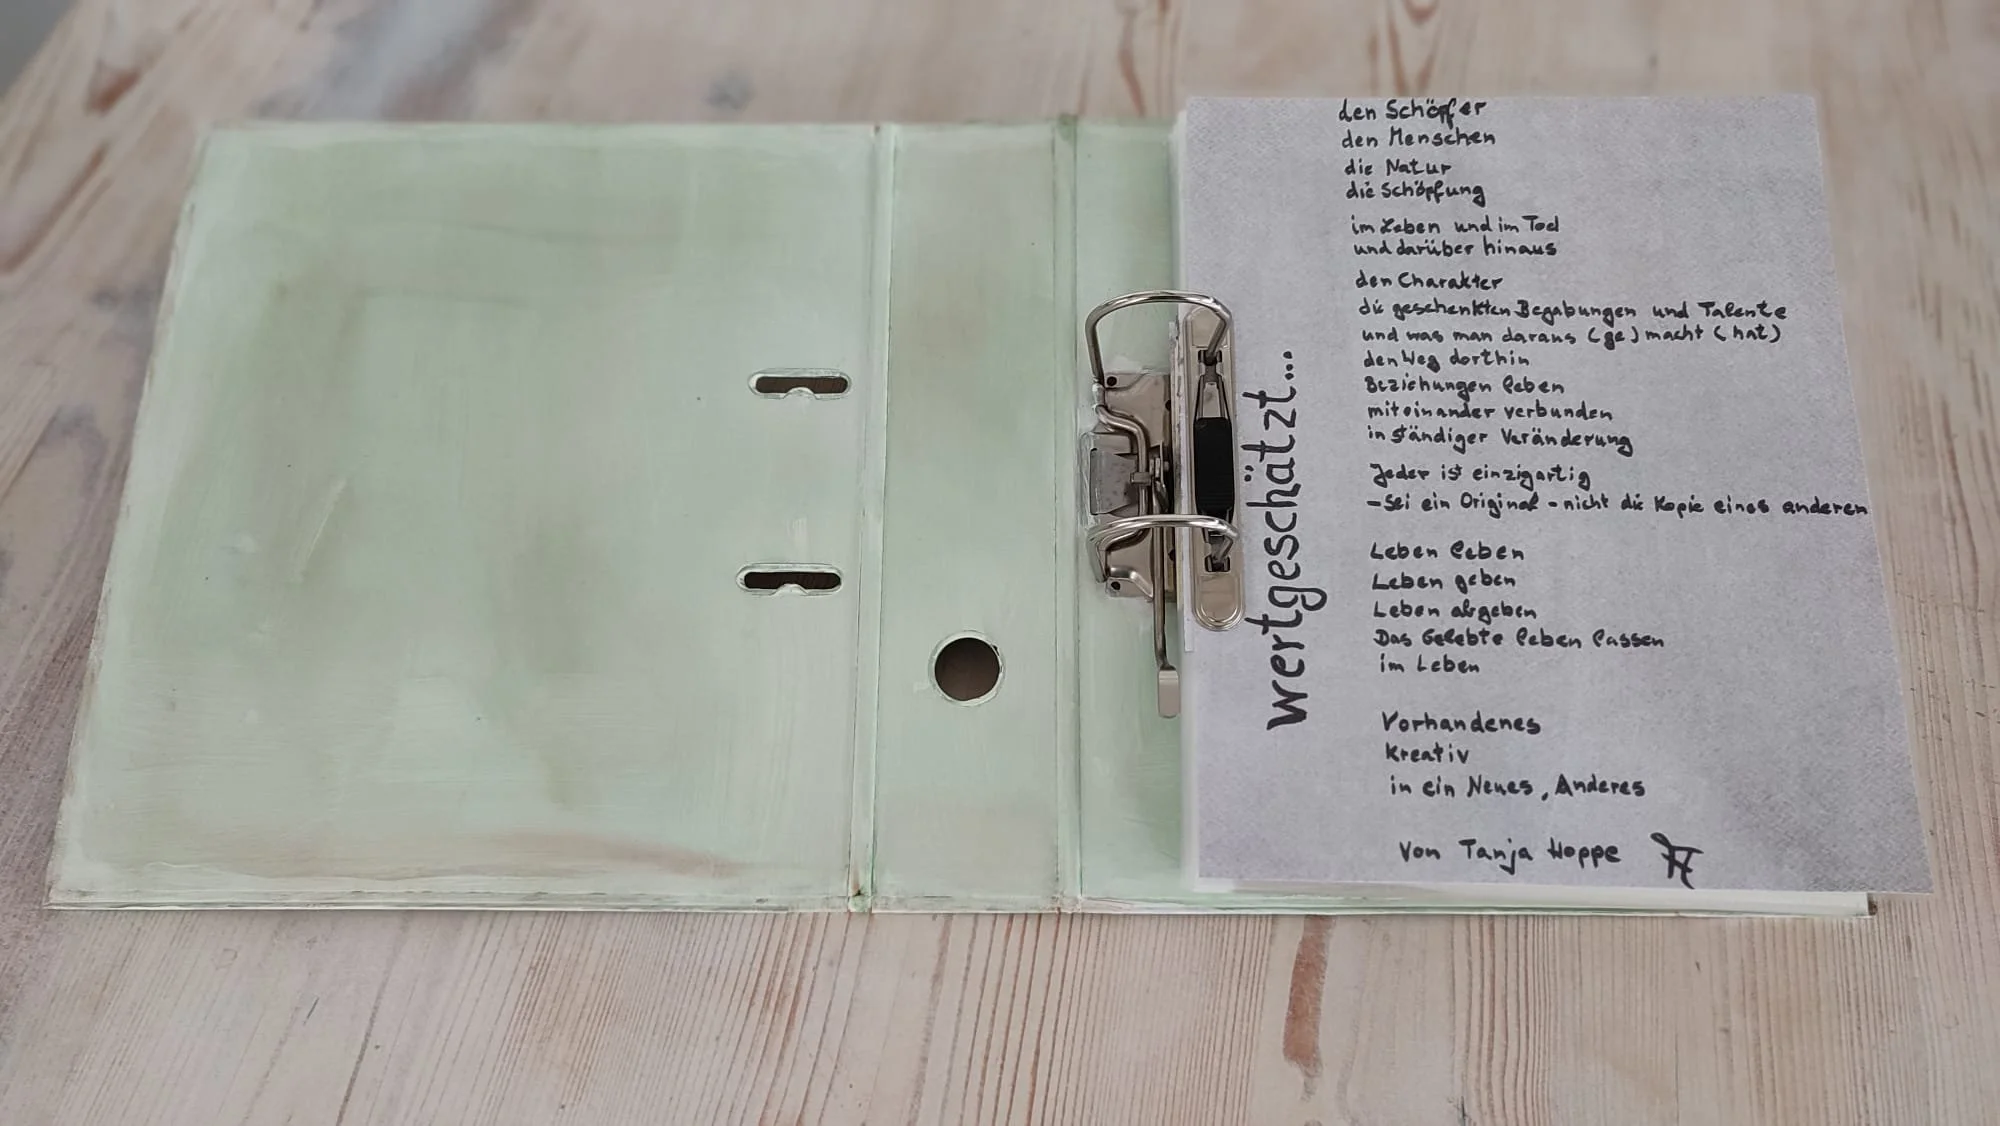 wertgeschätzt...
den Schöpfer
den Menschen
die Natur
die Schöpfung
im Leben und im Tod
und darüber hinaus
den Charakter
die geschenkten Begabungen und Talente
und was man daraus (ge)macht (hat)
den Weg dorthin
Beziehungen leben
miteinander verbunden
in ständiger Veränderung
Jeder ist einzigartig
- Sei ein Original - nicht die Kopie eines anderen
Leben leben
Leben geben
Leben abgeben
Das Gelebte leben lassen
im Leben
Vorhandenes
kreativ
in ein Neues, Anderes
von Tanja Hoppe